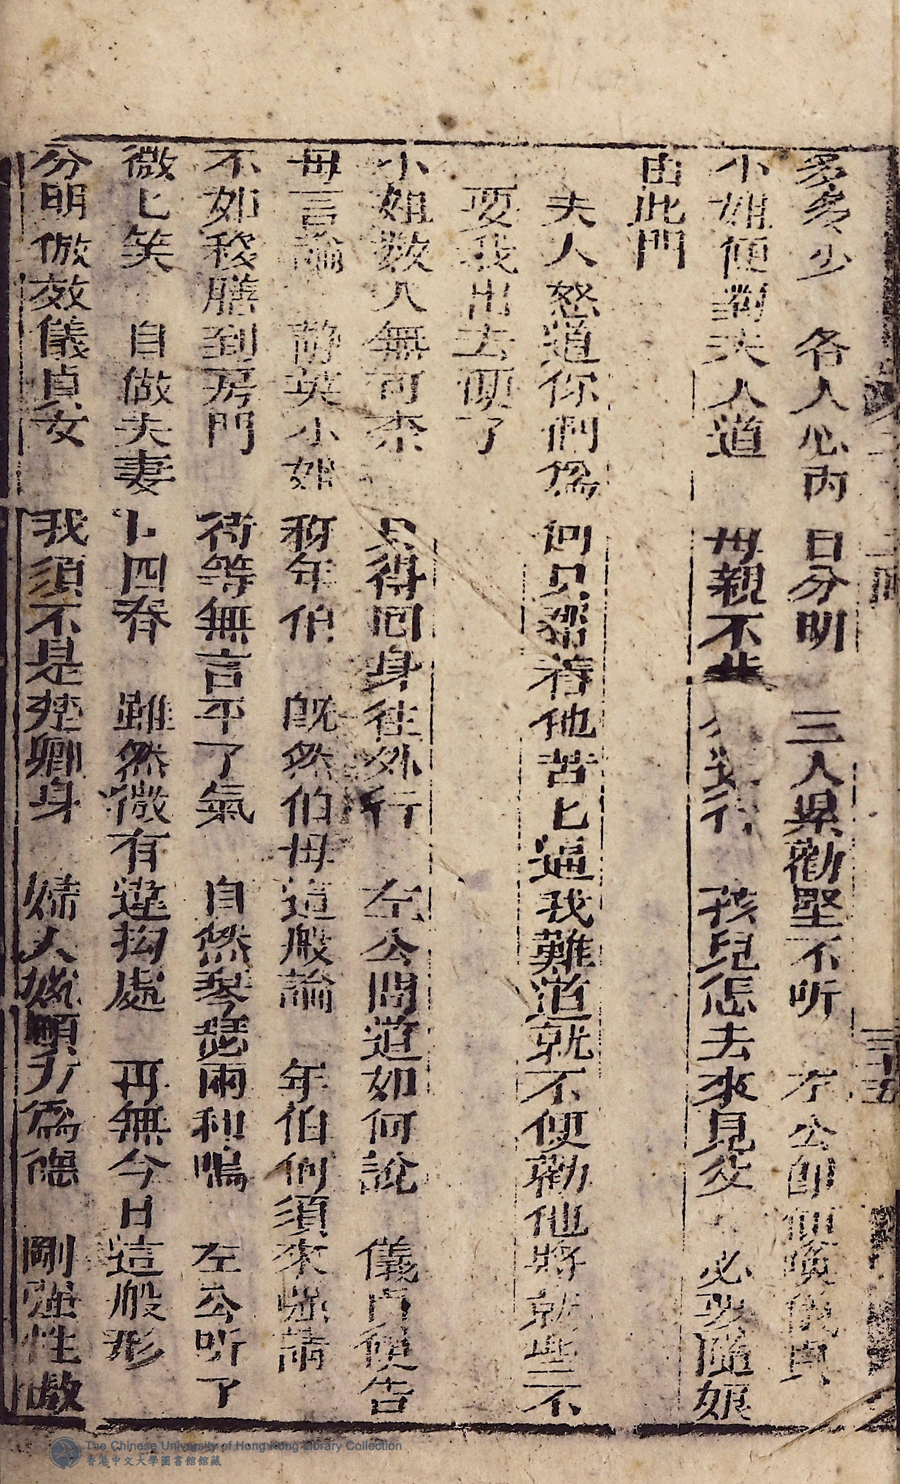 多多少　各人心內　日分明　三人累勸堅不听　左公卽便喚儀貞
小姐便對夫人道　母親不共　行　孩兒怎去來見父　必要隨娘
由此門
夫人怒道你們爲何只帮着他苦匕逼我難道就不便勸他將就些不
要我出去便了
小姐數人無可奈　只得回身往外行　左公問道如何說　儀貞便告
母言論　静英小姐称年伯　旣然伯母這般論　年伯何須來强請
不如移膳到房門　待等無言平了氣　自然琴瑟兩和鳴　左公听了
微匕笑　自做夫妻十四春　雖然微有違拘處　再無今日這般形
分明倣效儀貞女　我須不是楚卿身　婦人婉順方爲德　剛强性傲
二回
三十五
The Chinese University of Hong Kong Library Collection
香港中文大學圖書館館藏